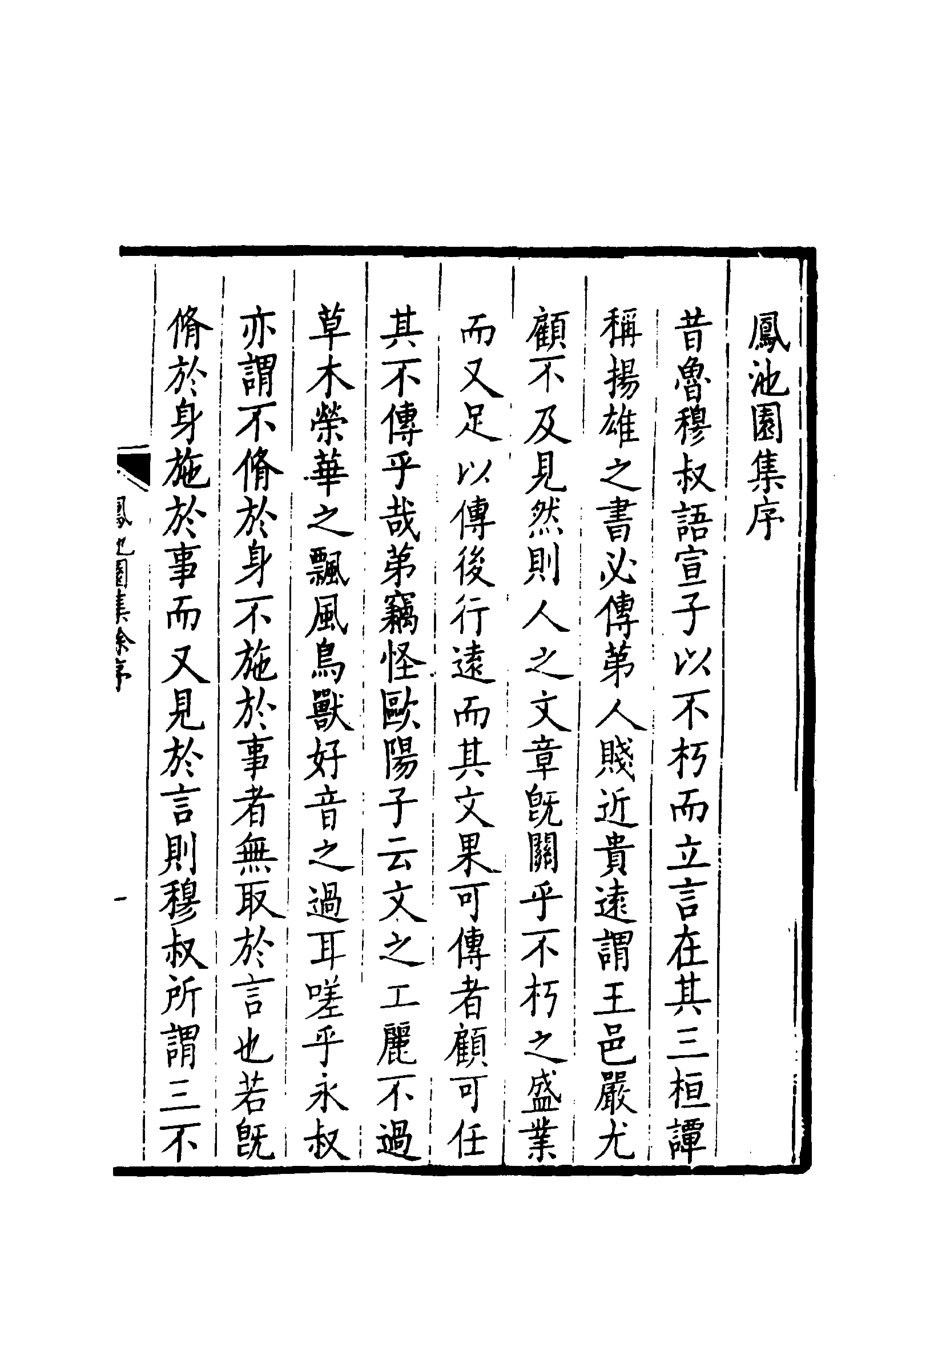 鳳池園集序
昔魯穆叔語宣子以不朽而立言在其三桓譚
稱揚雄之書必傳第人賤近貴遠謂王邑嚴尤
顧不及見然則人之文章旣關乎不朽之盛業
而又足以傳後行遠而其文果可傳者顧可任
其不傳乎哉第竊怪歐陽子云文之工麗不過
草木榮華之飄風鳥獸好音之過耳嗟乎永叔
亦謂不脩於身不施於事者無取於言也若旣
脩於身施於事而又見於言則穆叔所謂三不
鳳池園集徐序
一